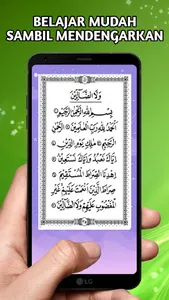 BELAJAR MUDAH
SAMBIL MENDENGARKAN
وَلَا الضَّالِّينَ
بِسْمِ اللَّهِ الرَّحْمَٰنِ الرَّحِيمِ
الْحَمْدُ لِلَّهِ رَبِّ الْعَالَمِينَ الرَّحْمَٰنِ
الرَّحِيمِ مَالِكِ يَوْمِ الدِّينِ
إِيَّاكَ نَعْبُدُ وَإِيَّاكَ نَسْتَعِينُ
اهْدِنَا الصِّرَاطَ الْمُسْتَقِيمَ
صِرَاطَ الَّذِينَ أَنْعَمْتَ عَلَيْهِمْ غَيْرِ
الْمَغْضُوبِ عَلَيْهِمْ وَلَا الضَّالِّينَ
LG